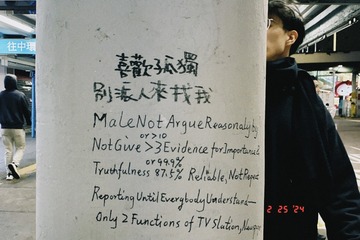 往中環
喜歡孤獨
別派人來找我
Male Not Argue Reasonaly by
or >10
Not Give >3 Evidence for Important
or 99.9%
Truthfulness 87.5% Reliable, Not Repeat
Reporting Until Everybody Understand—
Only 2 Functions of TV Station,
2 25 '24